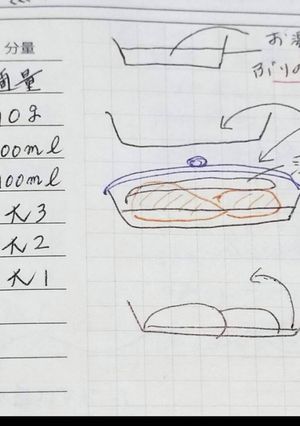 分量
適量
10g
00ml
100ml
大3
大2
大1
お湯
ぶりの